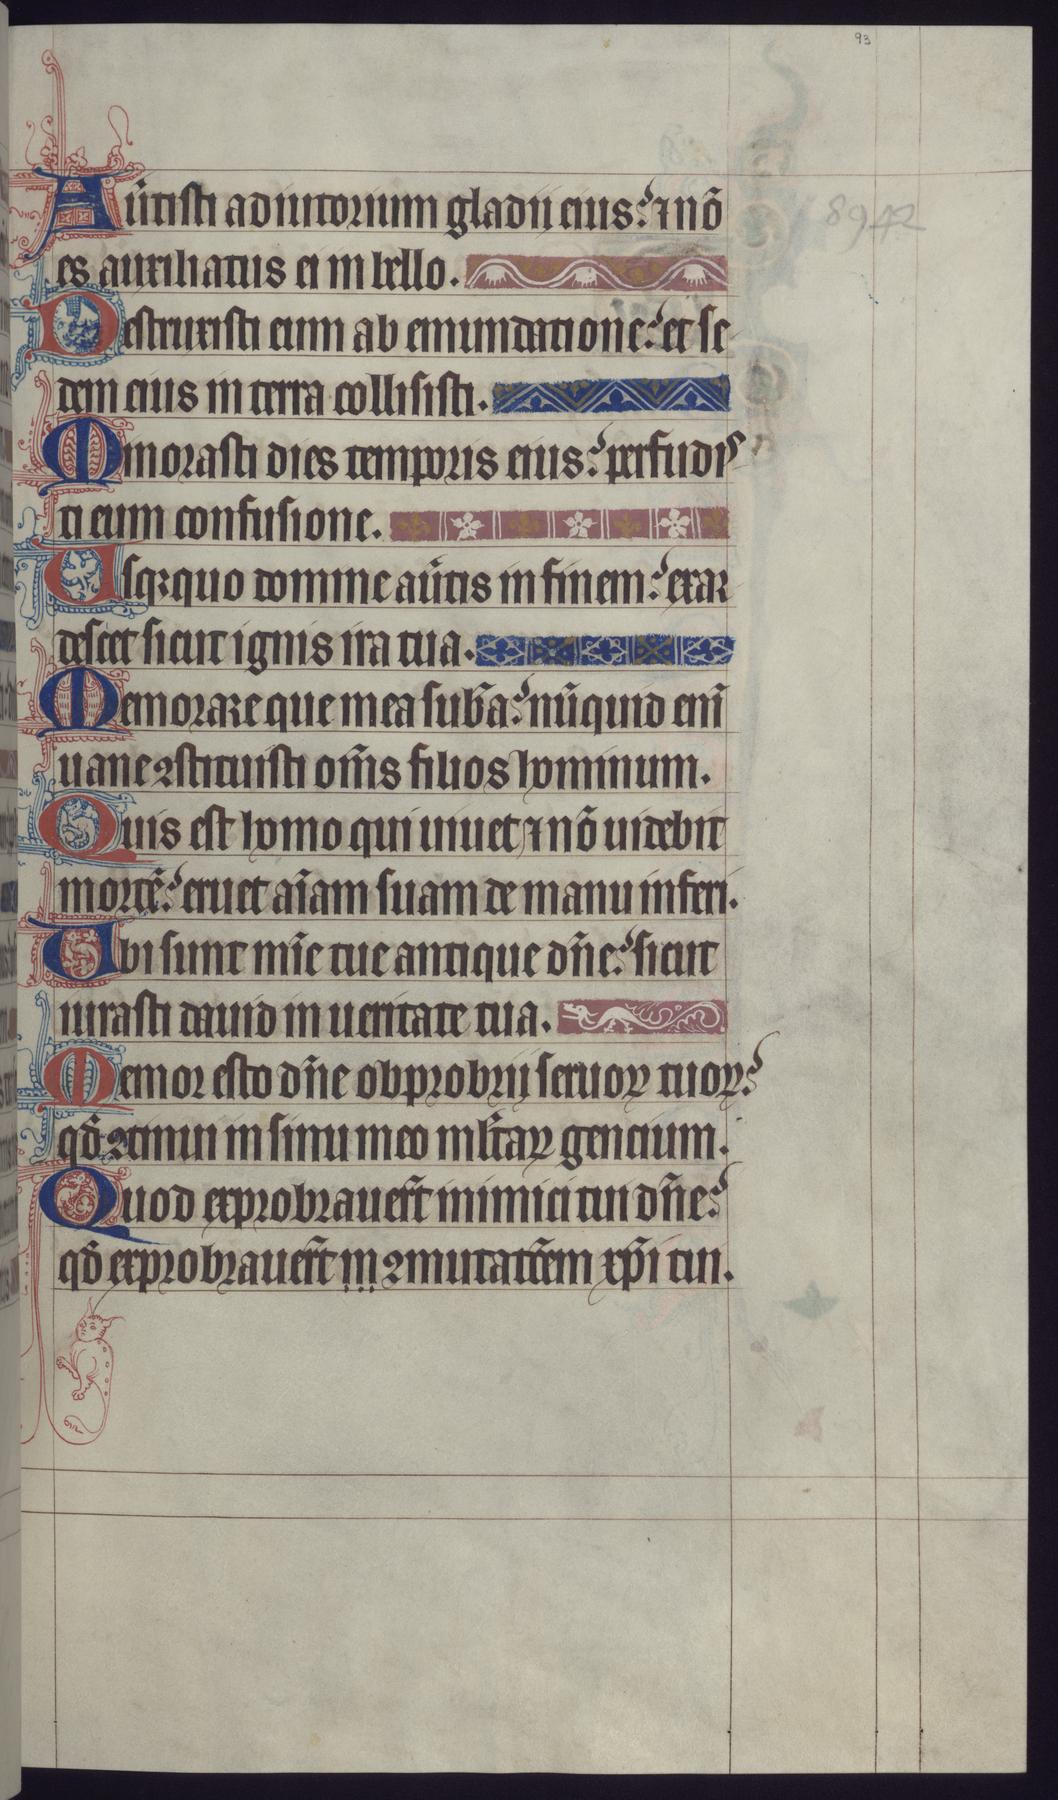 93
Aũtisti adiutorium gladii eius: ⁊ nõ
8942
es auxiliatus ei in bello.
Destruxisti eum ab emundatione: et se
dem eius in terra collisisti.
Minorasti dies temporis eius: perfudis
ti eum confusione.
Usqꝫquo domine aũtis in finem: exar
descet sicut ignis ira tua.
Memorare que mea sub̃a: nũquid eni̅
uane ꝯstituisti om̃s filios hominum.
Quis est homo qui uiuet ⁊ nõ uidebit
mortẽ: eruet ai̅am suam de manu inferi.
Ubi sunt mi̅e tue antique dn̅e: sicut
iurasti dauid in ueritate tua.
Memor esto dn̅e obprobrii seruoꝝ tuoꝝ:
qd̃ ꝯtinui in sinu meo ml̃taꝝ gencium.
Quod exprobrauer̃t inimici tui dn̅e:
qd̃ exprobrauer̃t ꝯmutatõem xp̅i tui.